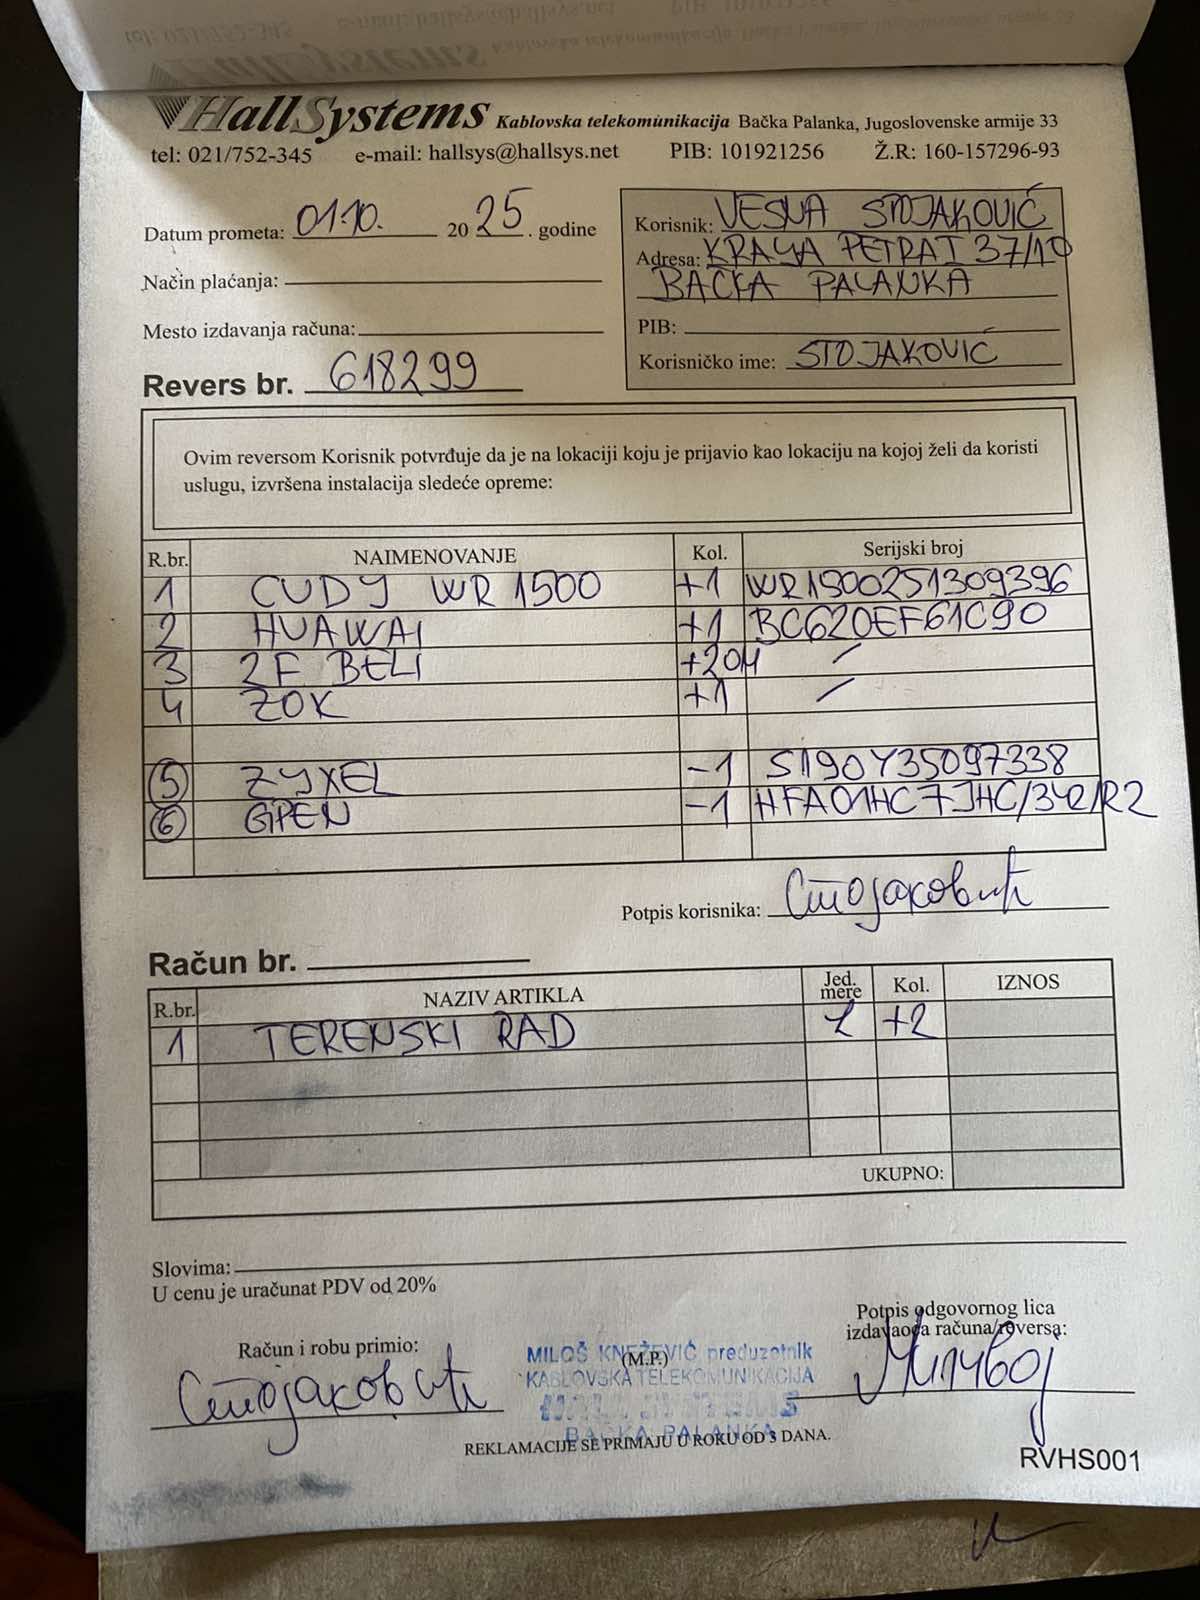 HallSystems Kablovska telekomunikacija Bačka Palanka, Jugoslovenske armije 33
tel: 021/752-345 e-mail: hallsys@hallsys.net PIB: 101921256 Ž.R: 160-157296-93
Datum prometa: 01.10. 20 25 . godine
Način plaćanja:
Mesto izdavanja računa:
Revers br. 618299
Korisnik: VESNA STOJAKOVIĆ
Adresa: KRALJA PETRA I 37/10
BAČKA PALANKA
PIB:
Korisničko ime: STOJAKOVIĆ
Ovim reversom Korisnik potvrđuje da je na lokaciji koju je prijavio kao lokaciju na kojoj želi da koristi
uslugu, izvršena instalacija sledeće opreme:
R.br. NAIMENOVANJE Kol. Serijski broj
1 CUDY WR 1500 +1 WR1500251309396
2 HUAWAI +1 BC620EF61C90
3 2F BELI +20M /
4 ZOK +1 /
5 ZYXEL -1 S190Y35097338
6 GPEN -1 HFA01HC7JHC/342/R2
Potpis korisnika: Стојаковић
Račun br.
R.br. NAZIV ARTIKLA Jed. mere Kol. IZNOS
1 TERENSKI RAD +2
UKUPNO:
Slovima:
U cenu je uračunat PDV od 20%
Račun i robu primio:
Стојаковић
MILOŠ KNEŽEVIĆ preduzetnik
(M.P.)
KABLOVSKA TELEKOMUNIKACIJA
HALL SYSTEMS
BAČKA PALANKA
Potpis odgovornog lica
izdavaoca računa/reversa:
REKLAMACIJE SE PRIMAJU U ROKU OD 3 DANA.
RVHS001